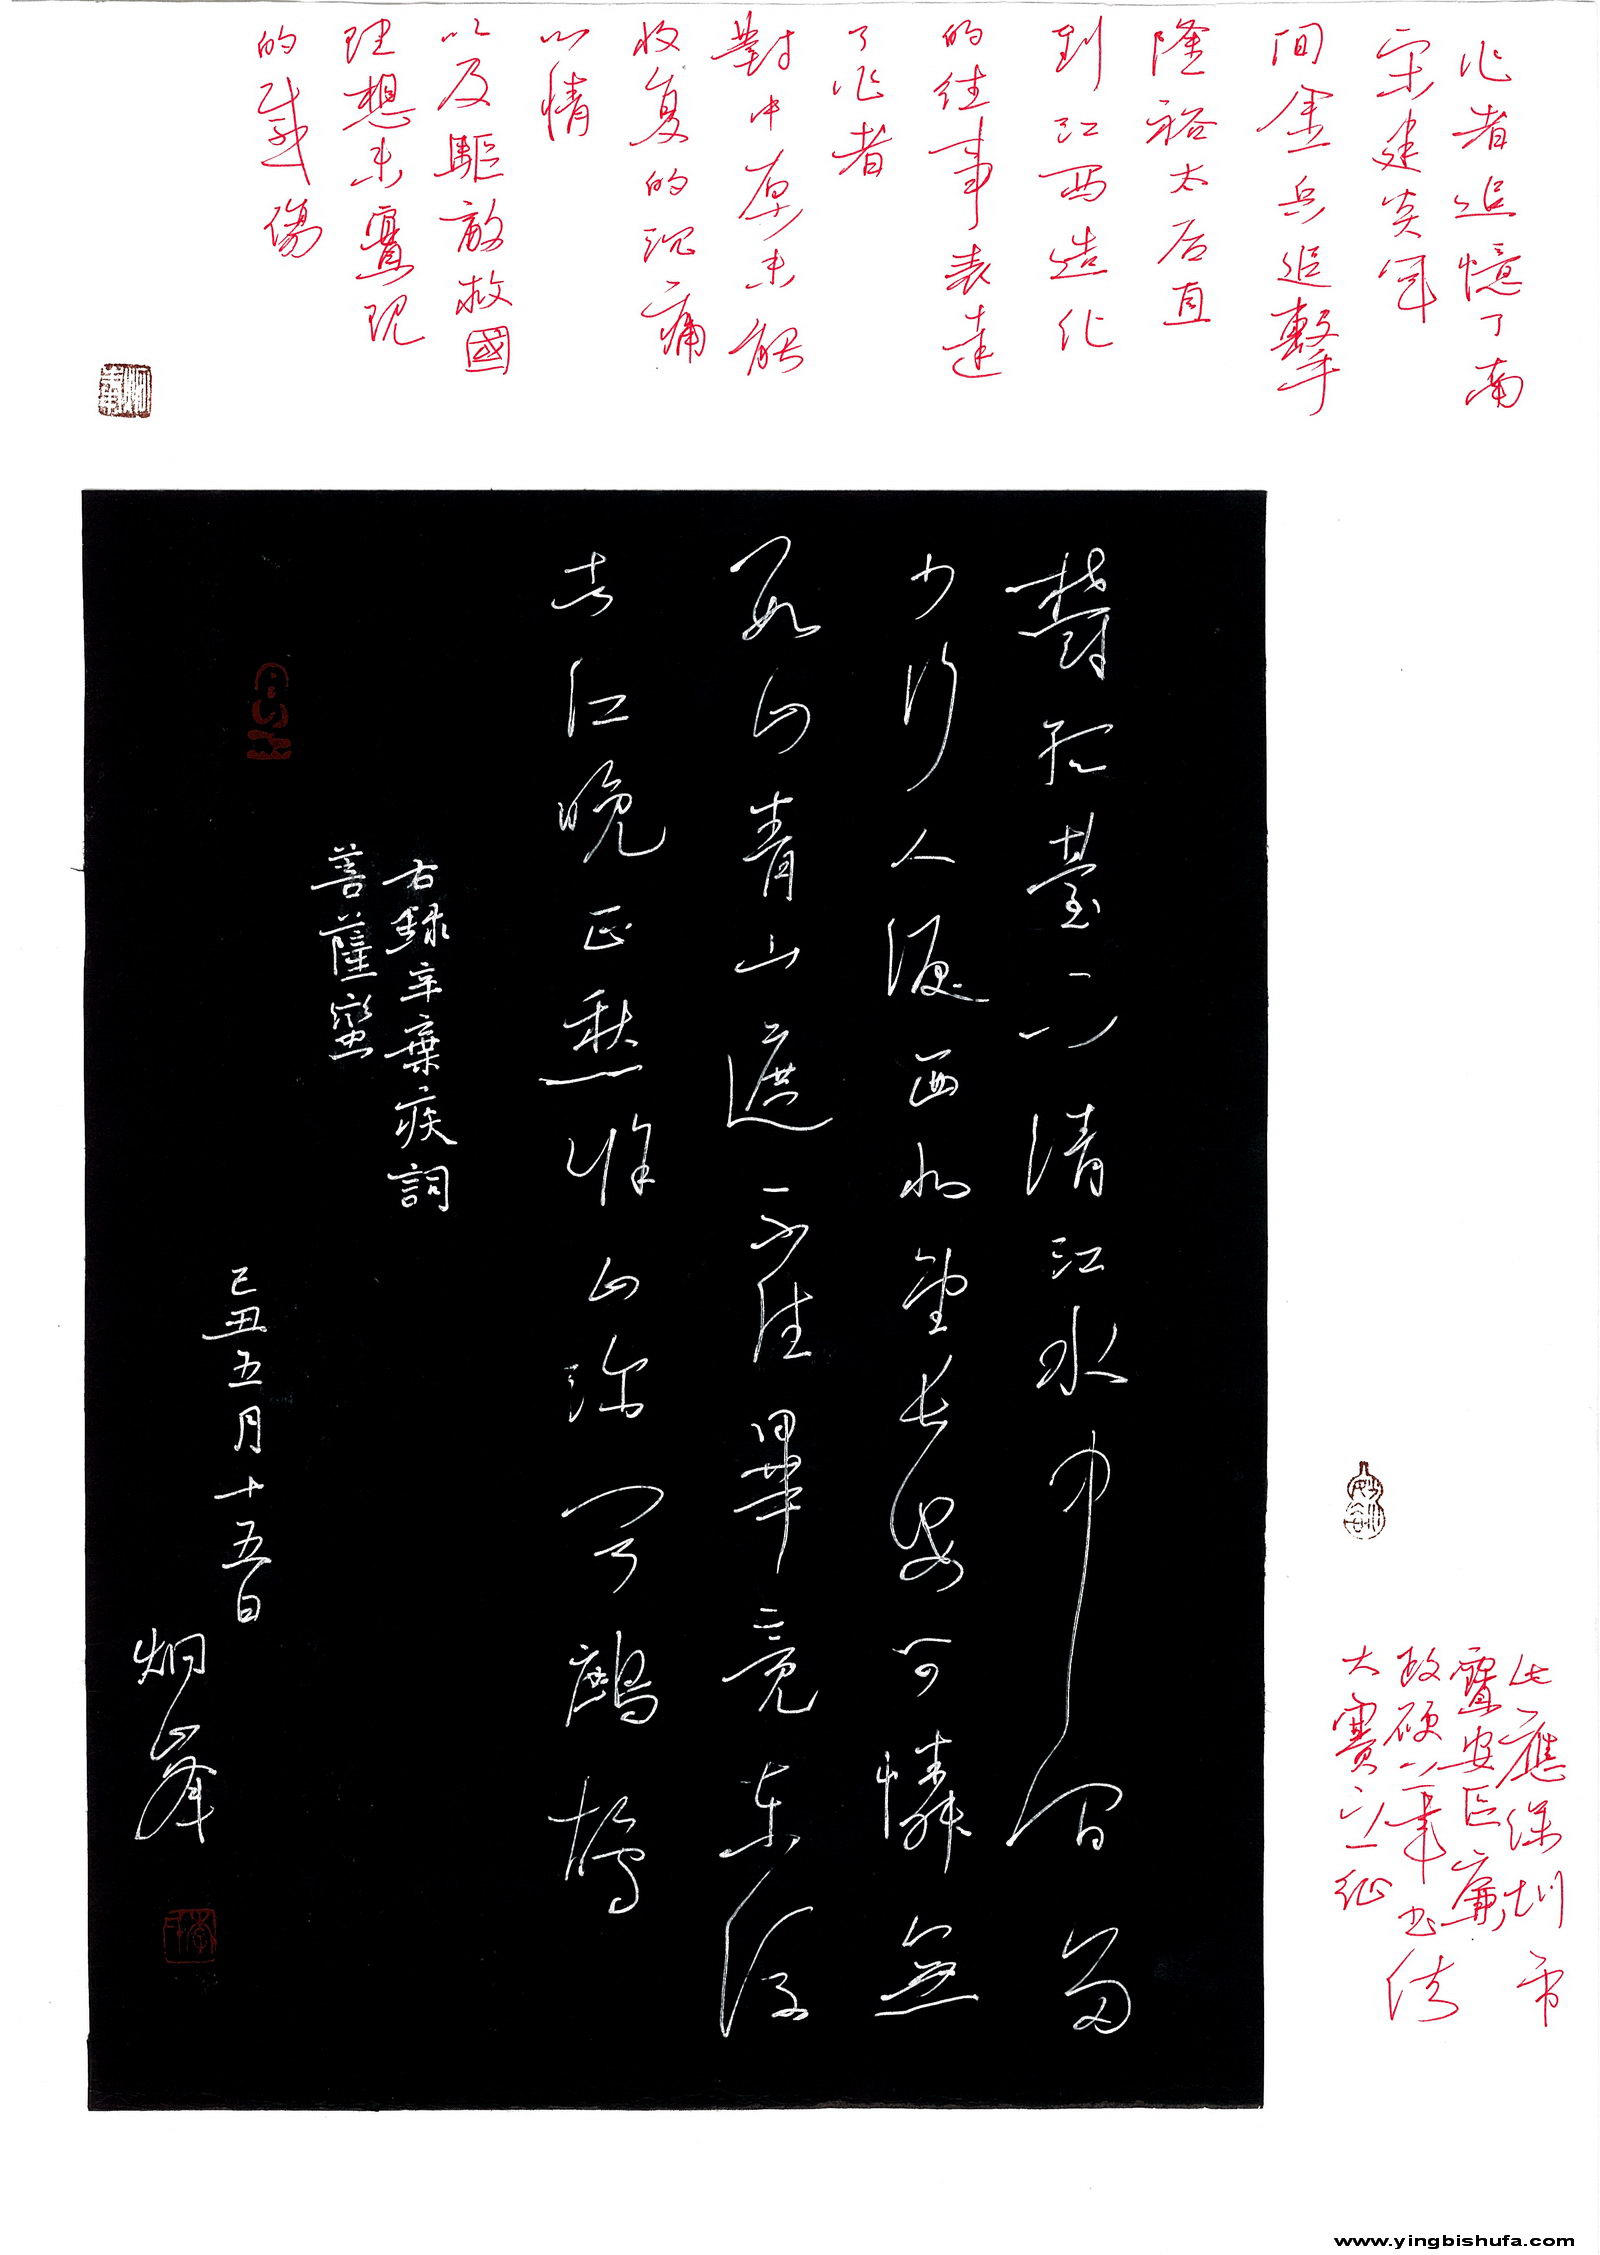 作者追憶了南
宋建炎年
间金兵追擊
隆裕太后直
到江西造化
的往事表達
了作者
對中原未能
收复的沉痛
心情
以及驅敵救國
理想未實現
的感傷
欝孤臺下清江水中间多
少行人淚西北望長安可憐無
數山青山遮不住畢竟東流
去江晚正愁餘山深闻鷓鴣
右録辛棄疾詞
菩薩蠻
己丑五月十五日
炯峰
此應深圳市
寶安区廉
政硬筆书法
大賽之征
www.yingbishufa.com